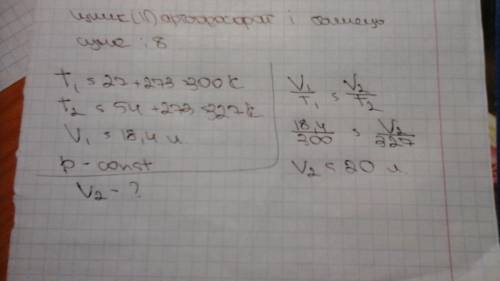 цинк(II) ортофосфат і
: 8
T₁ = 27 + 273 = 300 K
T₂ = 54 + 273 = 327 K
V₁ = 18,4 л
p - const
V₂ - ?
V₁/T₁ = V₂/T₂
18,4/300 = V₂/327
V₂ = 20 л